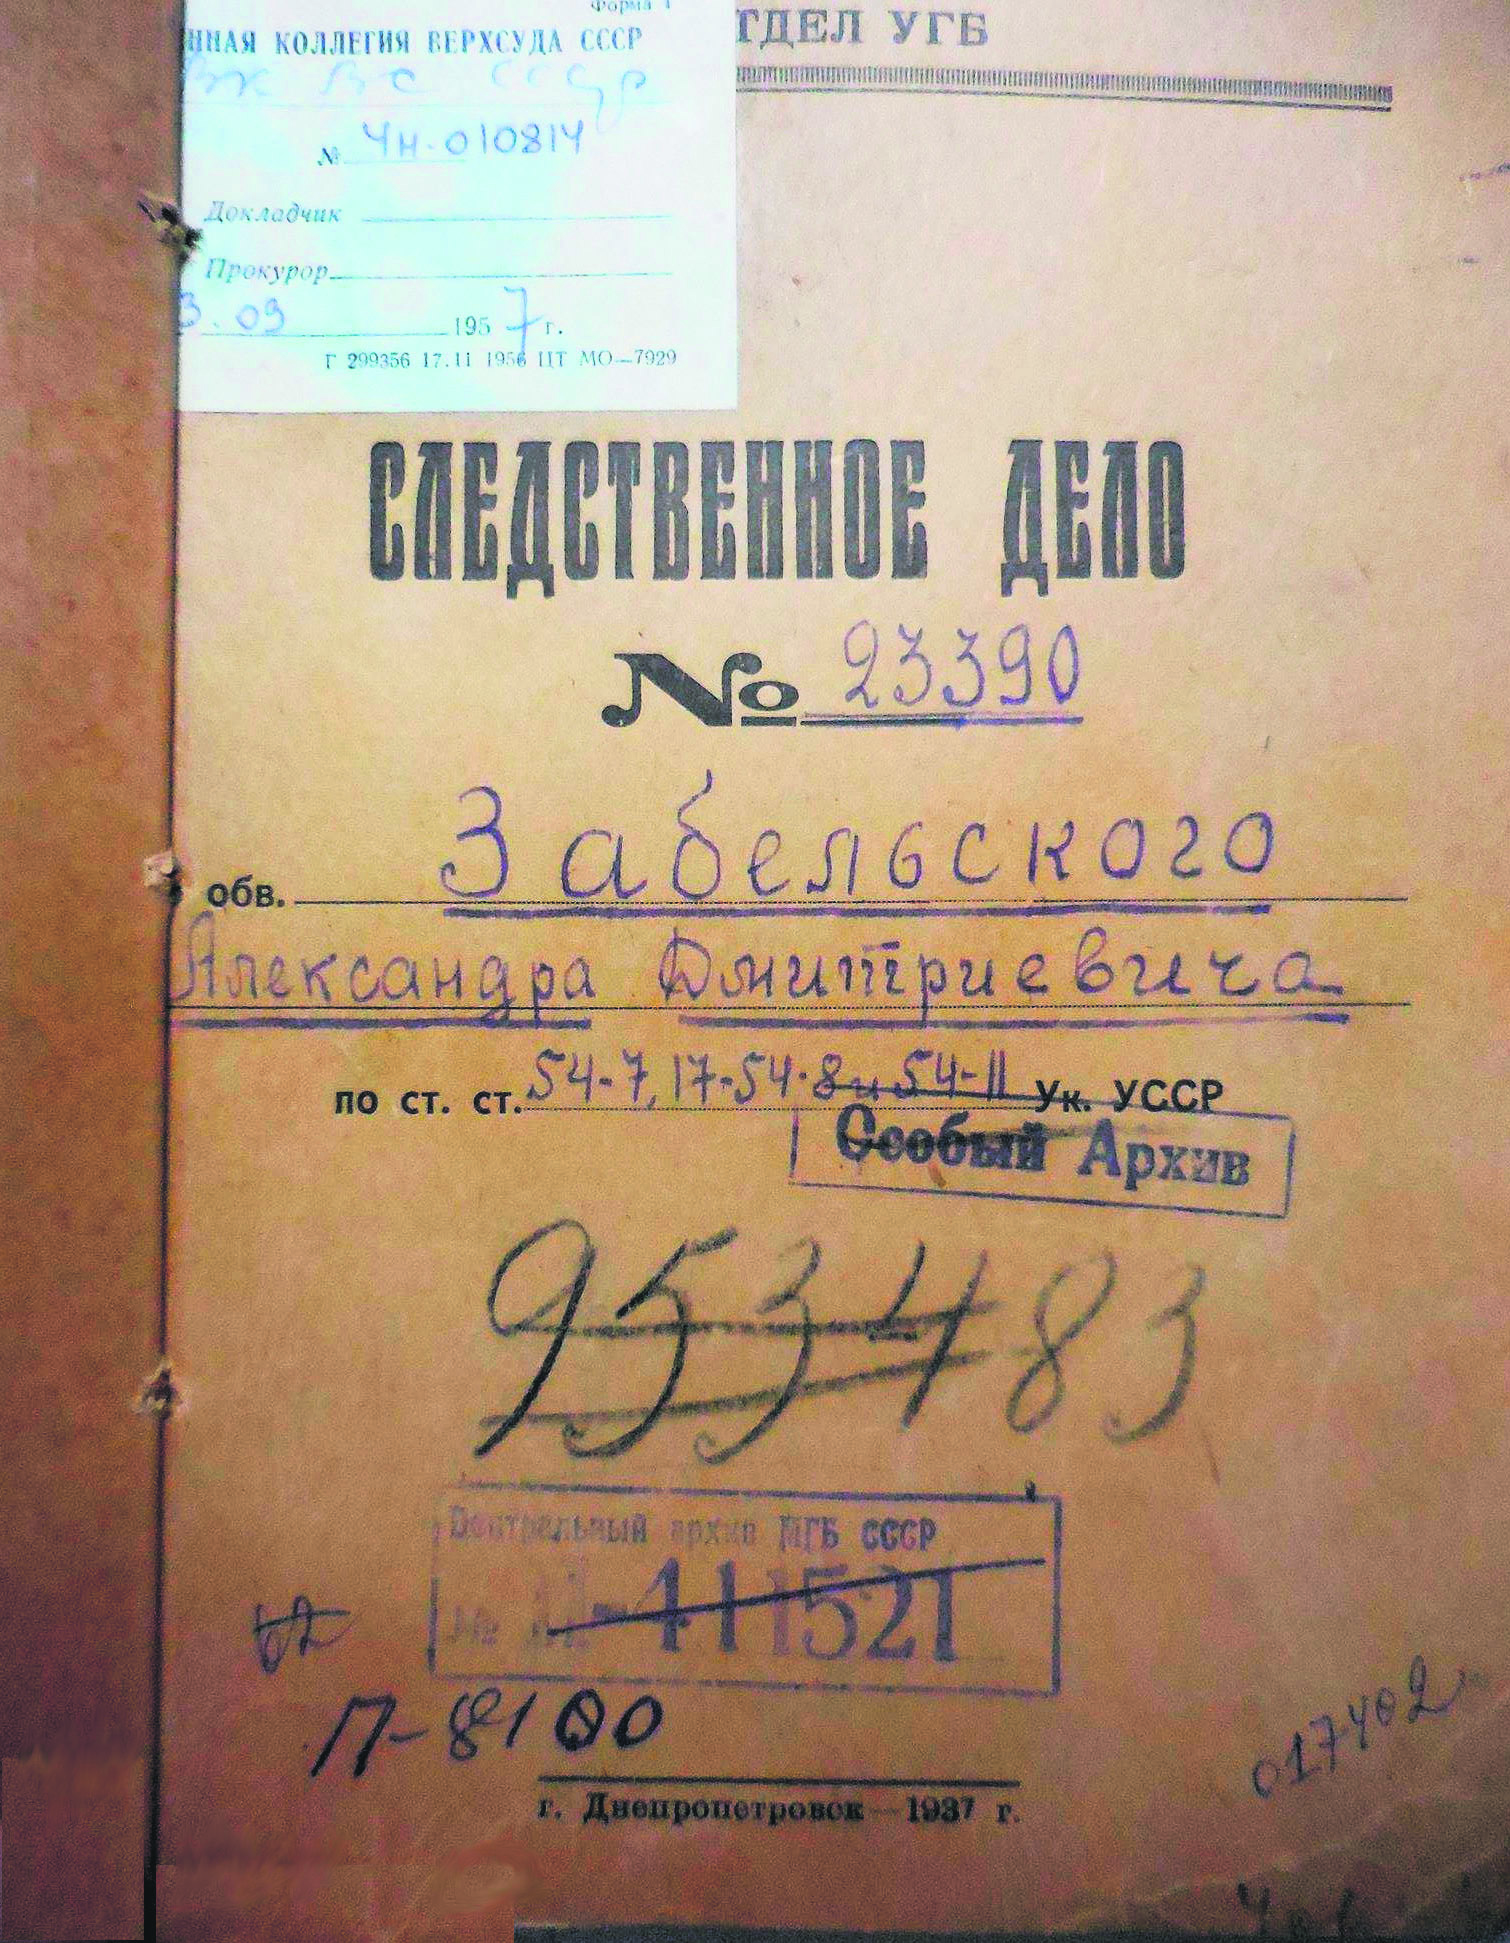 Форма 4
ННАЯ КОЛЛЕГИЯ ВЕРХСУДА СССР
ВК ВС СССР
№ 4н-010814
Докладчик
Прокурор
3.09 1957 г.
Г 299356 17.11 1956 ЦТ МО—7929
ТДЕЛ УГБ
СЛЕДСТВЕННОЕ ДЕЛО
№ 23390
обв. Забельского
Александра Дмитриевича
по ст. ст. 54-7, 17-54-8 и 54-11 Ук. УССР
Особый Архив
953483
Центральный архив МГБ СССР
№ 411521
П-8100
017402
г. Днепропетровск — 1937 г.